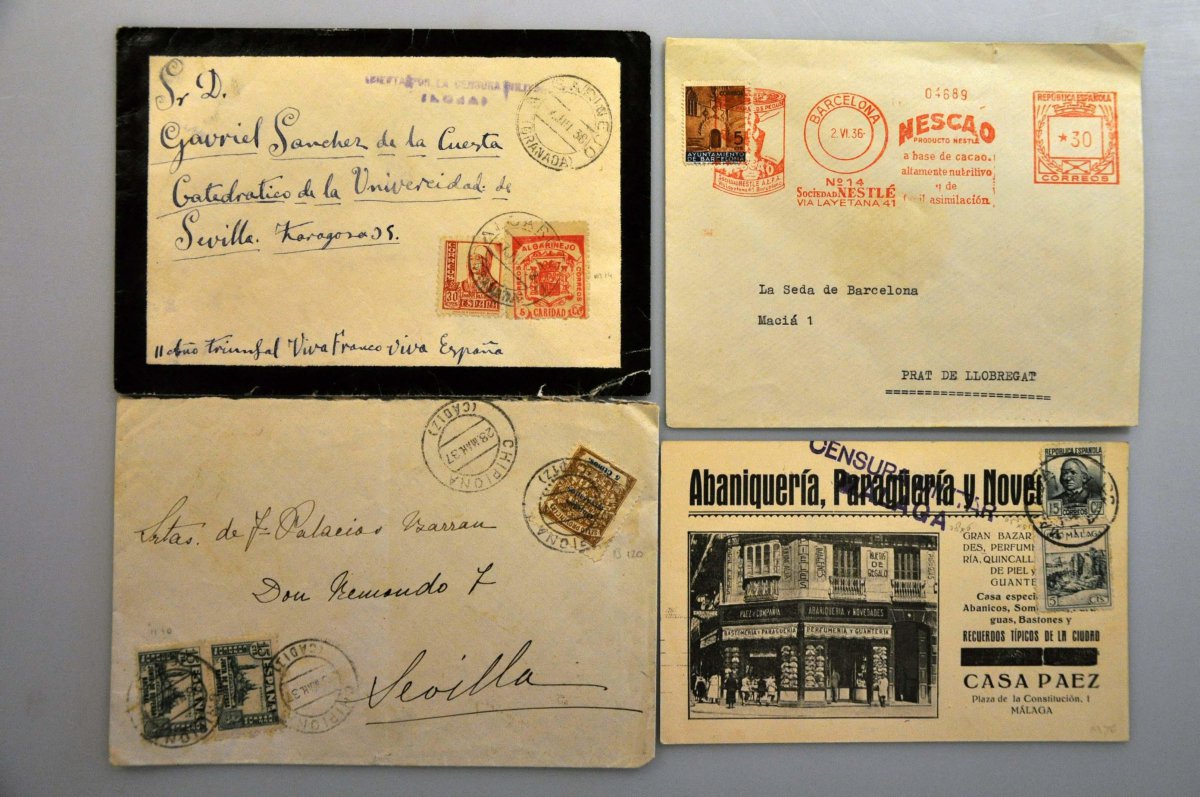 Sr D.
Gavriel Sanchez de la Cuesta
Catedratico de la Univercidad de
Sevilla. Zaragosa 35.
11 año triunfal Viva Franco Viva España
ABIERTA POR LA CENSURA MILITAR
(GRANADA)
CORREOS
30
ESPAÑA
ALGARINEJO
CORREOS
5 CARIDAD Cts
04689
BARCELONA
2.VI.36
NESCAO
PRODUCTO NESTLÉ
a base de cacao.
altamente nutritivo
y de
fácil asimilación.
REPÚBLICA ESPAÑOLA
*30
CORREOS
CORREOS
5
AYUNTAMIENTO
DE BARCELONA
Nº 14
SOCIEDAD NESTLÉ
VIA LAYETANA 41
La Seda de Barcelona
Maciá 1
PRAT DE LLOBREGAT
CHIPIONA
28 MAR. 37
(CADIZ)
Srtas. de
Palacios
Don Remondo 7
Sevilla
B 120
ESPAÑA
CHIPIONA
(CADIZ)
CENSURA MILITAR
MALAGA
Abaniquería, Paragüería y Nove
GRAN BAZAR
DES, PERFUME
RÍA, QUINCALL
DE PIEL y
GUANTE
Casa especi
Abanicos, Som
guas, Bastones y
RECUERDOS TÍPICOS DE LA CIUDAD
CASA PAEZ
Plaza de la Constitución, 1
MÁLAGA
OBJETOS
DE
REGALO
PAEZ Y COMPAÑIA
ABANIQUERIA Y NOVEDADES
BASTONERIA Y PARAGÜERIA
PERFUMERIA Y GUANTERIA
REPÚBLICA ESPAÑOLA
15 Cts
CORREOS
MÁLAGA
5 Cts